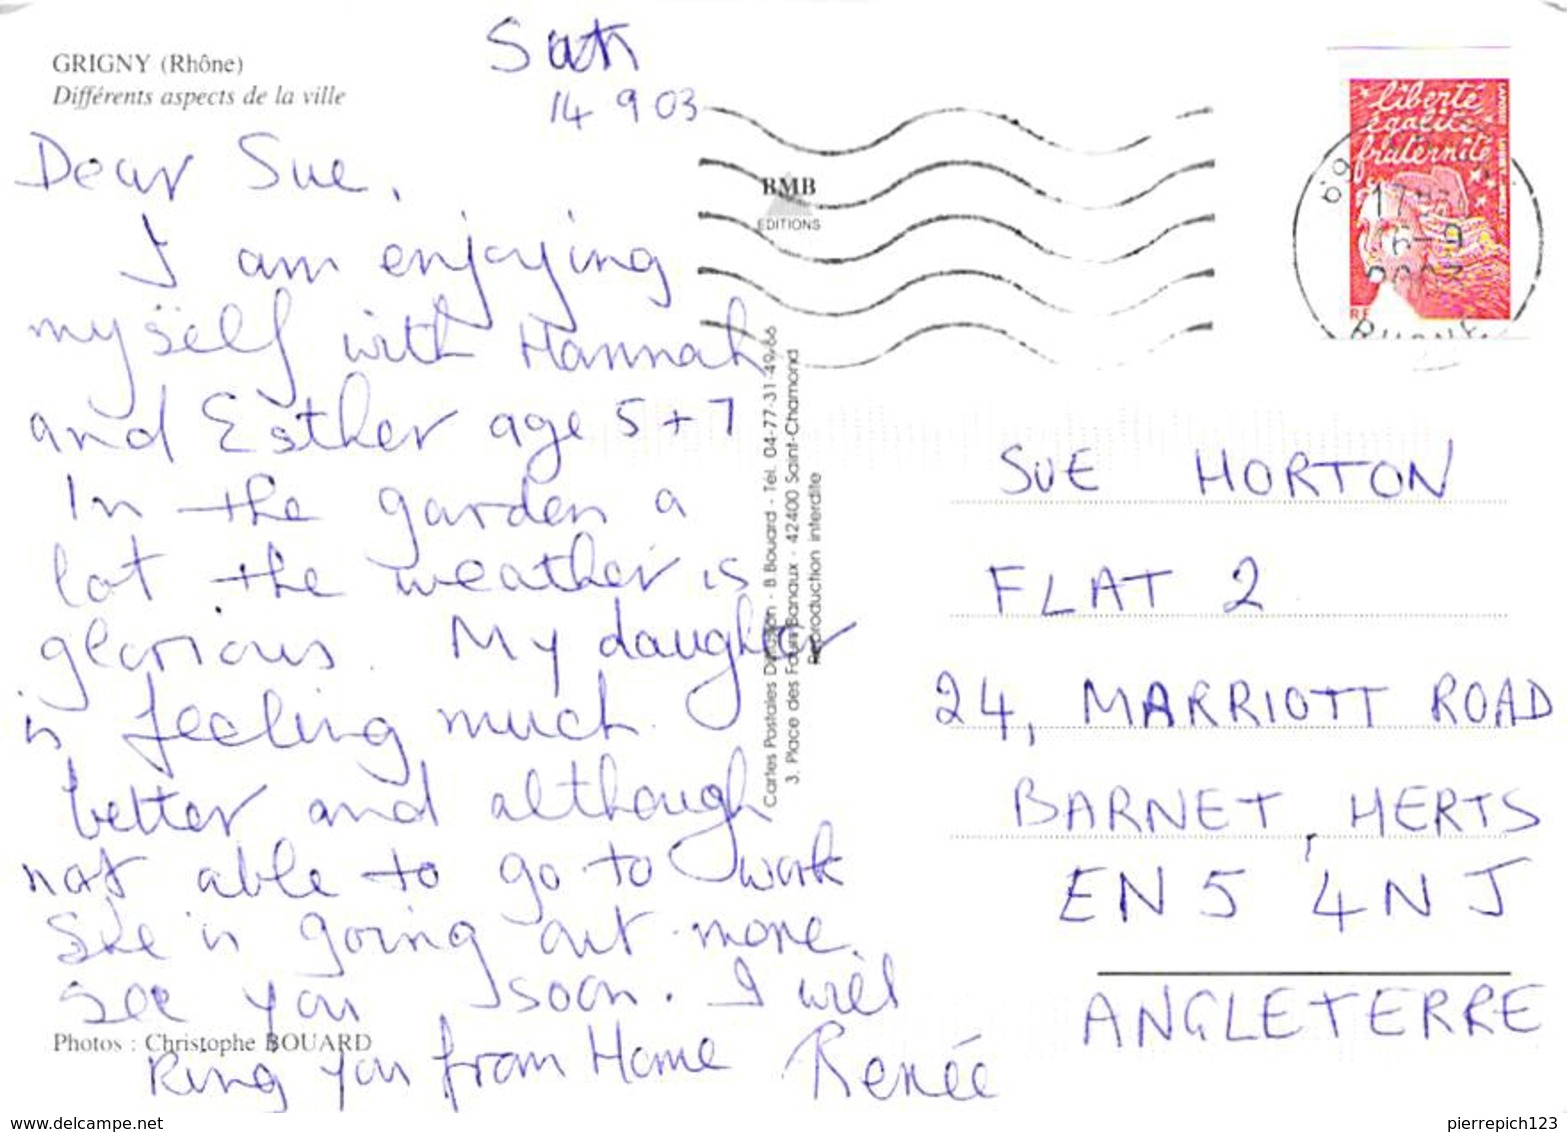 GRIGNY (Rhône)
Différents aspects de la ville
14 9 03
Dear Sue,
I am enjoying
myself with Hannah
and Esther age 5+7
In the garden a
lot the weather is
glorious. My daughter
is feeling much
better and although
not able to go to work
She is going out more.
See you soon. I will
Ring you from Home Renée
Photos : Christophe BOUARD
BMB
EDITIONS
Cartes Postales Diffusion - B.Bouard - Tél. 04-77-31-49-66
3, Place des Fours Banaux - 42400 Saint-Chamond
Reproduction interdite
liberté
égalité
fraternité
RF
SUE HORTON
FLAT 2
24, MARRIOTT ROAD
BARNET, HERTS
EN5 4NJ
ANGLETERRE
www.delcampe.net
pierrepich123